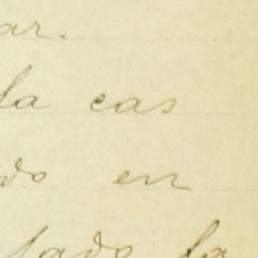 ar.
la cas
do en
lado la